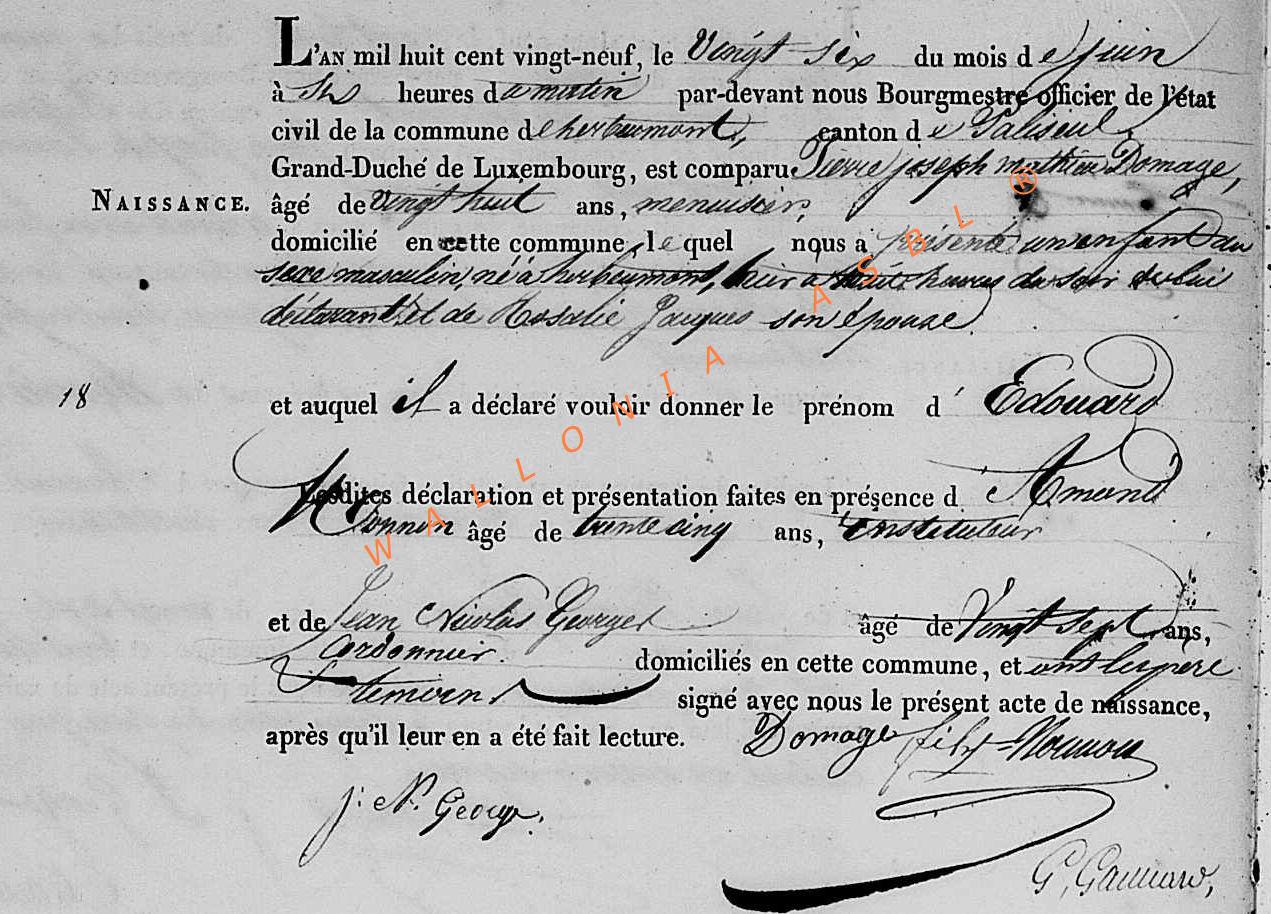 L'AN mil huit cent vingt-neuf, le Vingt six du mois de juin
à six heures du matin par-devant nous Bourgmestre officier de l'état
civil de la commune de herbeumont, canton de Paliseul
Grand-Duché de Luxembourg, est comparu Pierre joseph mathieu Domage,
NAISSANCE. âgé de vingt huit ans, menuisier,
domicilié en cette commune, le quel nous a présenté un enfant du
sexe masculin, né à herbeumont, hier à huit heures du soir de lui
déclarant et de Rosalie Jacques son épouse
18 et auquel il a déclaré vouloir donner le prénom d' Edouard
Lesdites déclaration et présentation faites en présence d Amand
Nonnon âgé de trente cinq ans, instituteur
et de Jean Nicolas Georges âgé de Vingt sept ans,
Cordonnier. domiciliés en cette commune, et ont les père
et temoins signé avec nous le présent acte de naissance,
après qu'il leur en a été fait lecture. Domage fils Nonnon
j: N. George.
WALLONIA ASBL ®